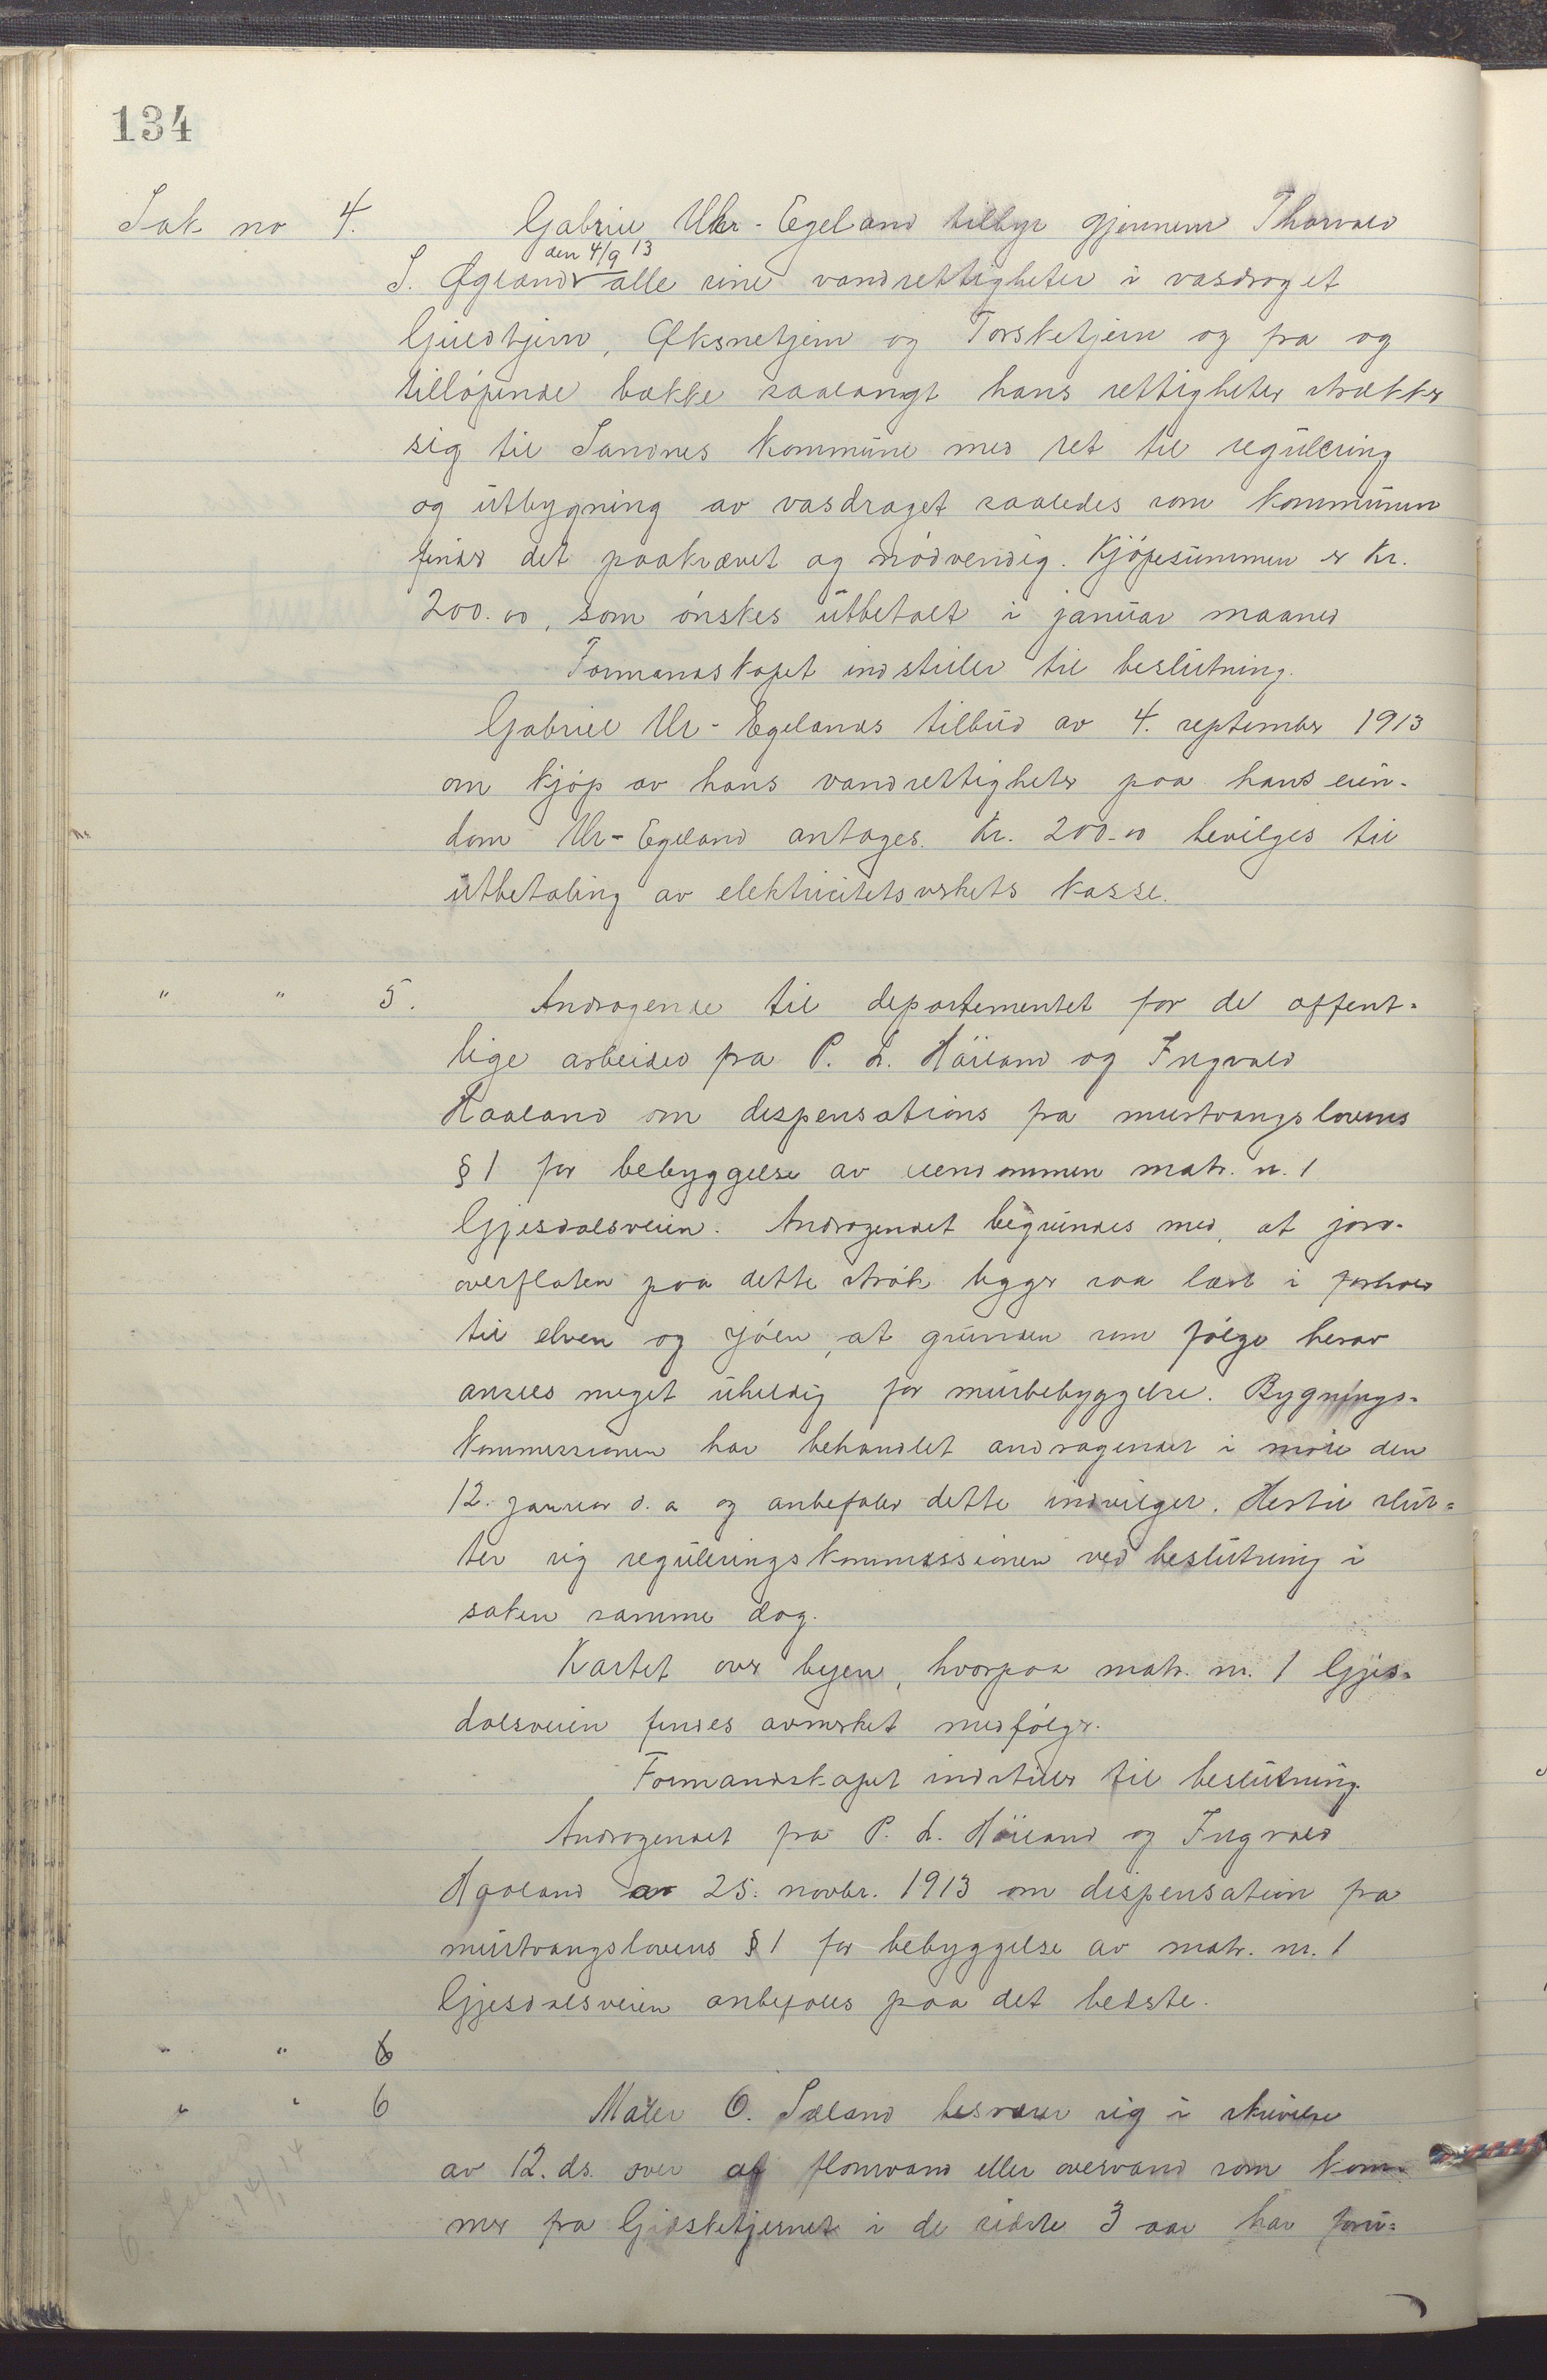 134
Sak no 4. Gabriel Ur-Egeland tilbyr gjennem Thorvald
den 4/9 13
S. Øgland alle sine vandrettigheter i vasdraget
tjern, Øksnetjern og Torsketjern og fra og
tilløpende bække saalangt hans rettigheter strækker
sig til Sandnes kommune med ret til regulering
og utbygning av vasdraget saaledes som kommunen
finder det paakrævet og nødvendig. Kjøpesummen er Kr.
200.00, som ønskes utbetalt i januar maaned
Formandskapet indstiller til beslutning.
Gabriel Ur-Egelands tilbud av 4. september 1913
om kjøp av hans vandrettigheter paa hans eien-
dom Ur-Egeland antages. Kr. 200.00 bevilges til
utbetaling av elektricitetsverkets kasse.
" " 5. Andragende til departementet for de offent-
lige arbeider fra P. L. Höiland og Ingvald
Haaland om dispensations fra murtvangslovens
§ 1 for bebyggelse av eiendommen matr. n. 1
Gjesdalsveien. Andragendet begrundes med, at jord-
overflaten paa dette strøk ligger saa lavt i forhold
til elven og sjøen, at grunden som følge herav
ansees meget uheldig for murbebyggelse. Bygnings-
kommissionen har behandlet andragendet i møte den
12. januar d. a og anbefaler dette indvilget. Hertil slut-
ter sig reguleringskommissionen ved beslutning i
saken samme dag.
Kartet over byen, hvorpaa matr. nr. 1 Gjes-
dalsveien findes avmerket medfølger.
Formandskapet indstiller til beslutning.
Andragendet fra P. L. Höiland og Ingvald
Haaland av 25. novbr. 1913 om dispensation fra
murtvangslovens § 1 for bebyggelse av matr. nr. 1
Gjesdalsveien anbefales paa det bedste.
" " 6
" " 6 Maler O. Sæland besværer sig i skrivelse
av 12. ds. over at flomvand eller overvand som kom-
mer fra Gisketjernet i de sidste 3 aar har foru-